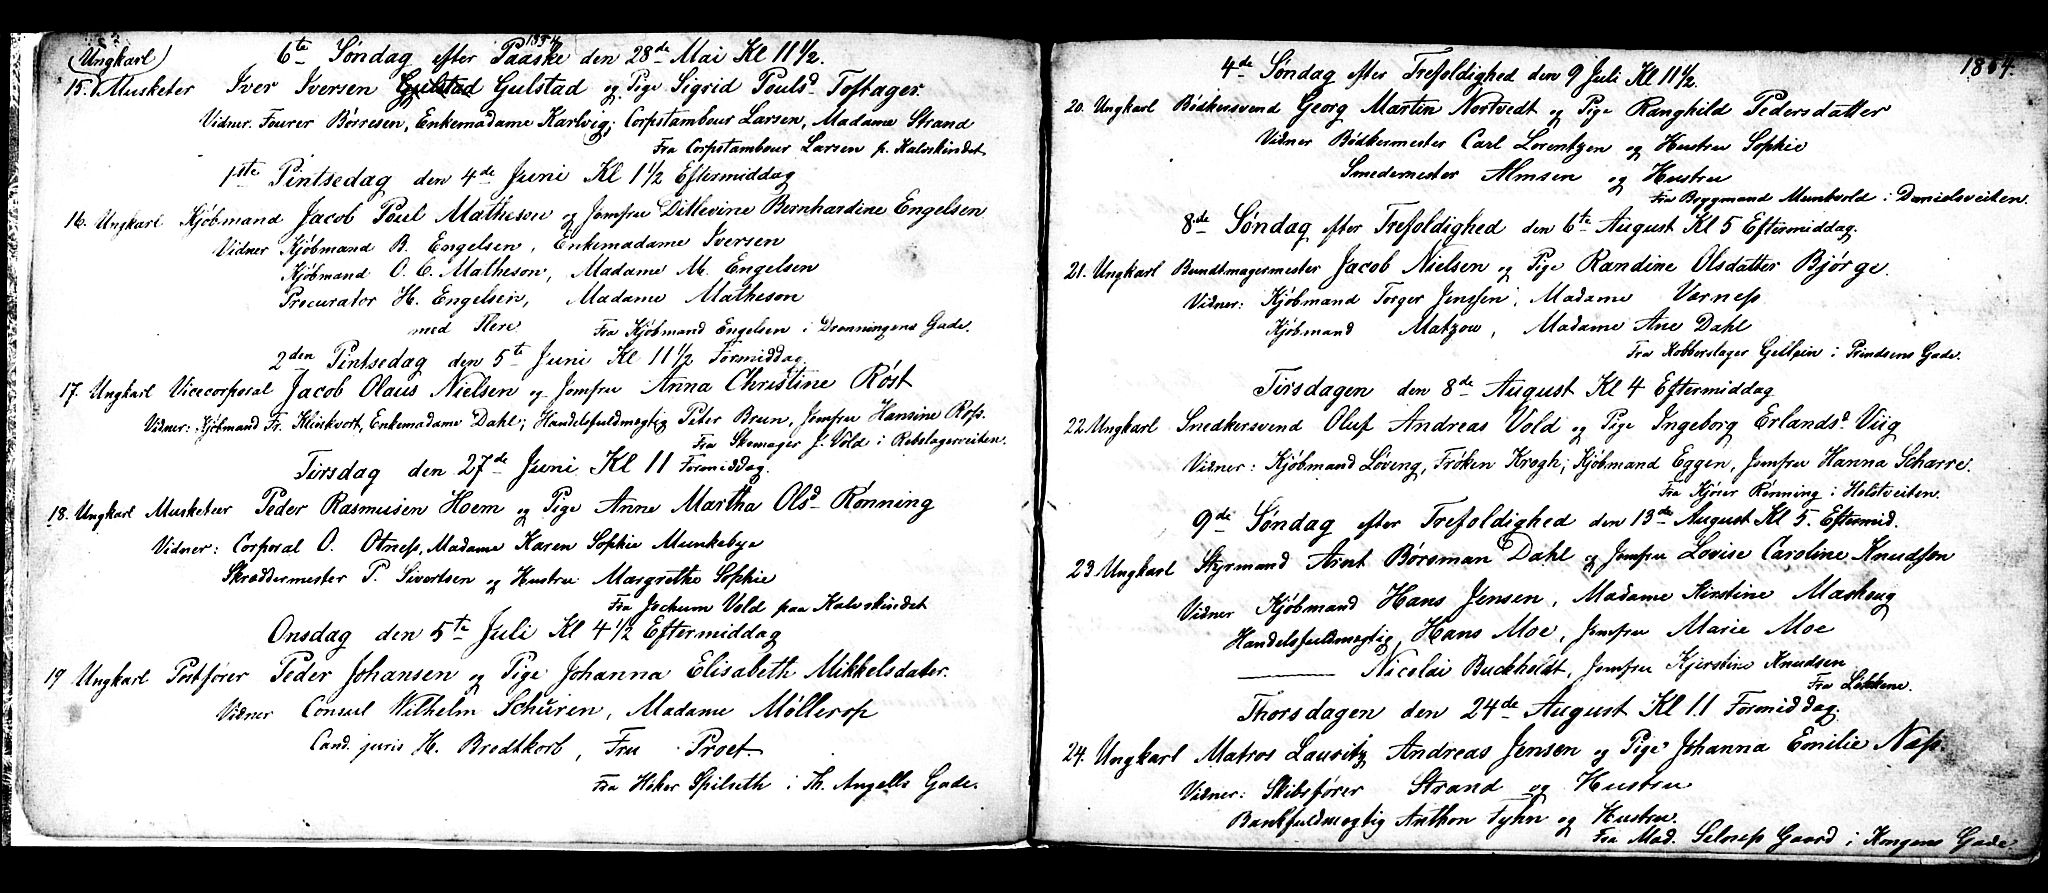 1854
6te Søndag efter Paaske den 28de Mai Kl 11½.
Ungkarl
15. Musketer Iver Iversen Gulstad Gulstad og Pige Sigrid Pouls.d Toftager.
Vidner. Fourer Børresen, Enkemadame Karlvig; Corpstambour Larsen, Madame Strand
Fra Corpstambour Larsen p. Kalvskindet
1ste Pintsedag den 4de Juni Kl 1½ Eftermiddag
16. Ungkarl Kjøbmand Jacob Poul Matheson og Jomfru Ditlevine Bernhardine Engelsen
Vidner Kjøbmand B. Engelsen, Enkemadame Iversen
Kjøbmand O. C. Matheson, Madame M. Engelsen
Procurator H. Engelsen, Madame Matheson
med Flere Fra Kjøbmand Engelsen i Dronningens Gade.
2den Pintsedag den 5te Juni Kl 11½ Formiddag
17. Ungkarl Vicecorporal Jacob Olaus Nielsen og Jomfru Anna Christine Röst
Vidner: Kjøbmand Fr. Klinkvort, Enkemadame Dahl; Handelsfuldmegtig Peter Brun, Jomfru Hansine Ross.
Fra Skomager J. Vold i Rebslagerveiten.
Tirsdag den 27de Juni Kl 11 Formiddag.
18. Ungkarl Musketeer Peder Rasmusen Hoem og Pige Anne Martha Olsd Rønning
Vidner: Corporal O. Otness, Madame Karen Sophie Munkebye
Skræddermester P. Sivertsen og Hustru Margrethe Sophie
Fra Jochum Vold paa Kalvskindet
Onsdag den 5te Juli Kl 4½ Eftermiddag
19 Ungkarl Postfører Peder Johansen og Pige Johanna Elisabeth Mikkelsdater.
Vidner Consul Wilhelm Schüren, Madame Möllerop
Cand. juris H. Bredtkorb, Fru Proet
Fra Høker Spilseth i Th. Angells Gade.
1854.
4de Søndag efter Trefoldighed den 9 Juli Kl 11½.
20. Ungkarl Bødkersvend Georg Martin Nortvedt og Pige Ranghild Pedersdatter
Vidner Bødkermester Carl Lorentzen og Hustru Sophie
Smedemester Almsen og Hustru
Fra Brygmand Munkvold i Danielsveiten.
8de Søndag efter Trefoldighed den 6te August Kl 5 Eftermiddag.
21. Ungkarl Bundtmagermester Jacob Nielsen og Pige Randine Olsdatter Bjørge.
Vidner: Kjøbmand Torger Jenssen, Madame Værness
Kjøbmand Matzow, Madame Ane Dahl
Fra Kobberslager Gellein i Prindsens Gade.
Tirsdagen den 8de August Kl 4 Eftermiddag
22 Ungkarl Snedkersvend Oluf Andreas Vold og Pige Ingeborg Erlandsd Viig
Vidner: Kjøbmand Løveng, Frøken Krogh; Kjøbmand Eggen, Jomfru Hanna Scharre.
Fra Kjører Rønning i Holstveiten.
9de Søndag efter Trefoldighed den 13de August Kl 5. Eftermid.
23 Ungkarl Styrmand Arnt Børsman Dahl og Jomfru Lovise Caroline Knudsson
Vidner Kjøbmand Hans Jensen, Madame Kirstine Maskoug
Handelsfuldmegtig, Hans Moe, Jomfru Marie Moe
Nicolai Buckholdt, Jomfru Kjerstine Knudsen
Fra Løkkene.
Thorsdagen den 24de August Kl 11 Formiddag.
24. Ungkarl Matros Lauritz Andreas Jensen og Pige Johanna Emilie Næss.
Vidner: Skibsfører Strand og Hustru
Bankfuldmegtig Anthon Tyhn og Hustru.
Fra Mad. Selness Gaard i Kongens Gade